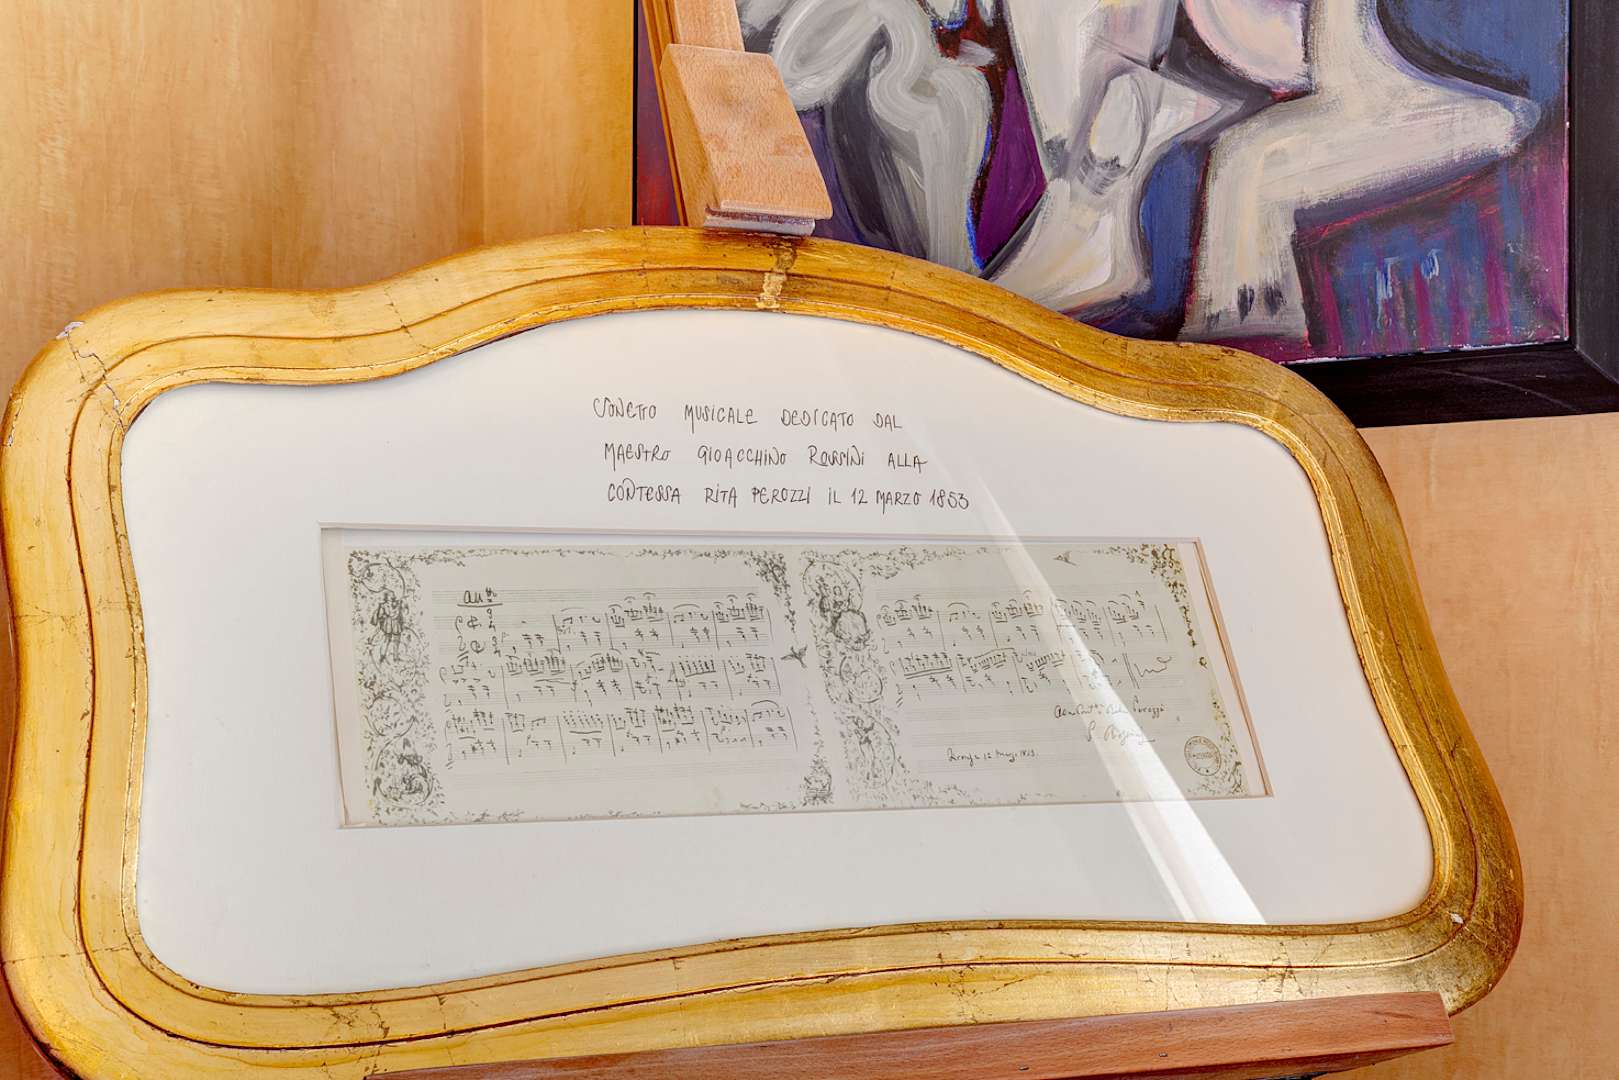 SONETTO MUSICALE DEDICATO DAL
MAESTRO GIOACCHINO ROSSINI ALLA
CONTESSA RITA PEROZZI IL 12 MARZO 1853
Perozzi
G. Rossini
12 Marzo 1853